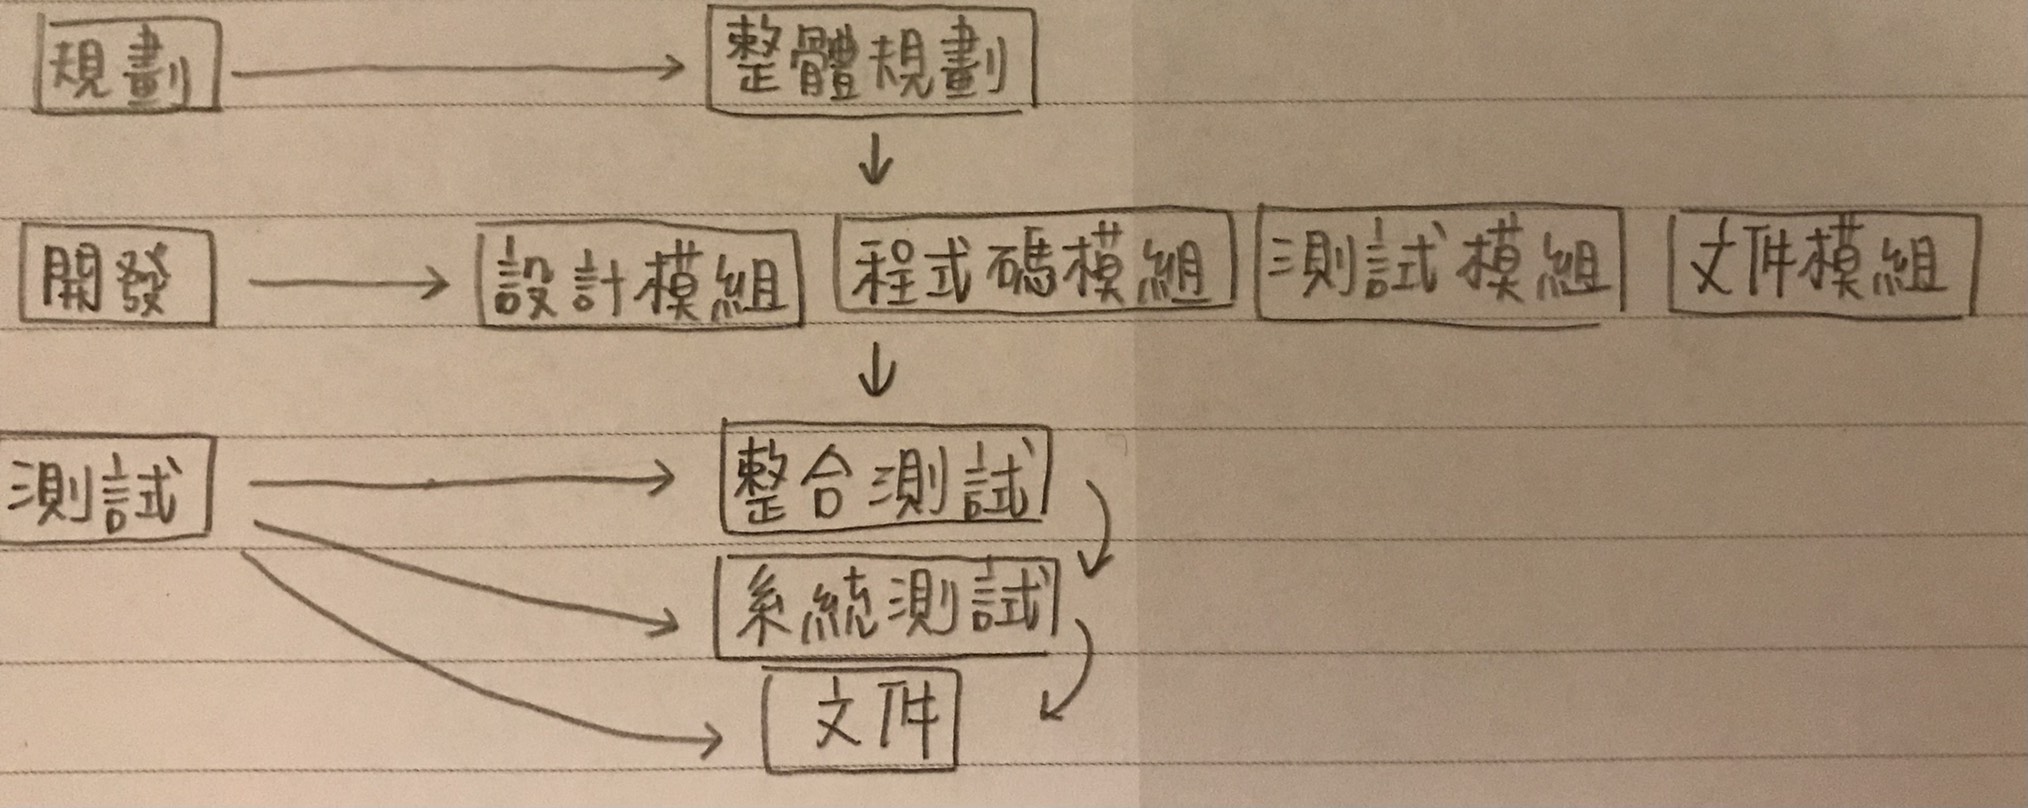 規劃 整體規劃
開發 設計模組 程式碼模組 測試模組 文件模組
測試 整合測試
系統測試
文件